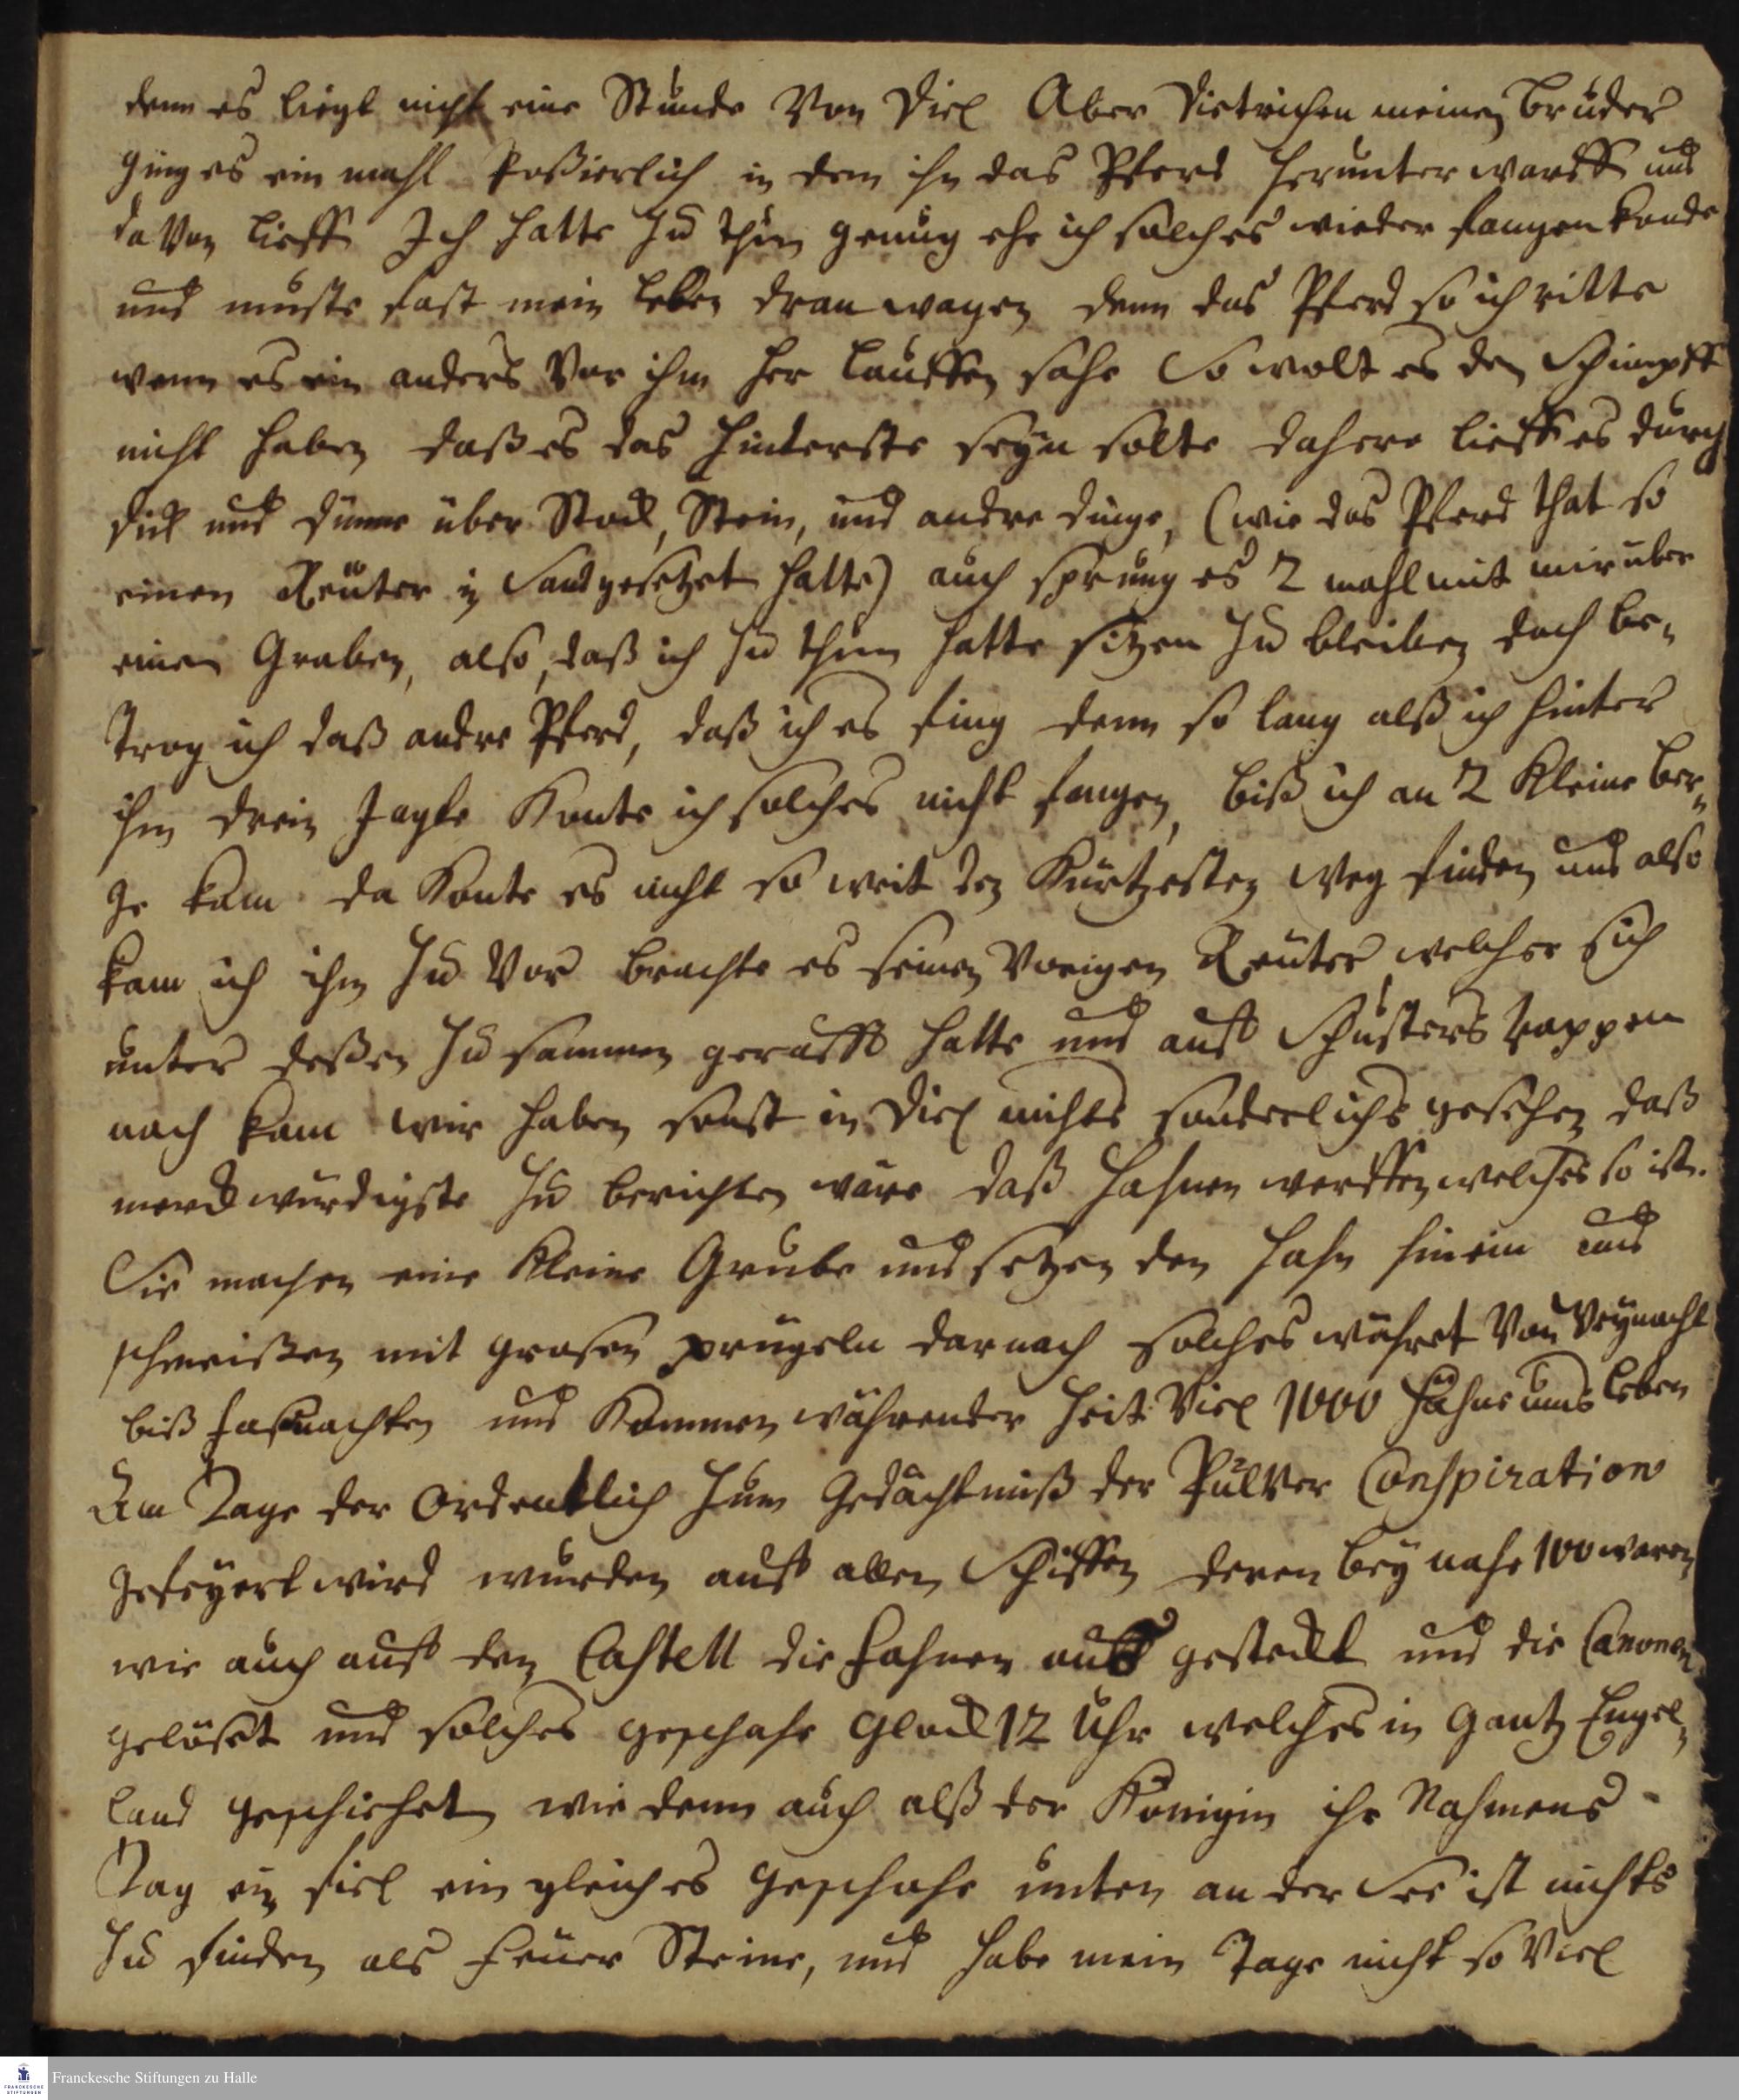 denn es liegt nicht eine Stunde von Diel Aber Dietrichen meinen bruder
ging es ein mahl Poßierlich in dem ihn das Pferd herunter warff und
da von lieff Ich hatte zu thun genung ehe ich solches wieder fangen konde
und muste fast mein leben dran wagen denn das Pferd so ich ritte
wenn es ein anders vor ihm her lauffen sahe So wolt es den Schimpff
nicht haben daß es das hinterste seyn solte dahero lieff es durch
dick und dünne über Stock, Stein, und andre dinge, (wie das Pferd that so
einen Reuter in Sand gesetzet hatte) auch sprung es 2 mahl mit mir über
einen Graben, also, daß ich zu thun hatte sitzen zu bleiben doch be-
trog ich daß andre Pferd, daß ich es fing denn so lang alß ich hinter
ihm drein Jagte Konte ich solches nicht fangen, biß ich an 2 Kleine ber-
ge kam da Konte es nicht so weit den Kürtzesten weg finden und also
kam ich ihm zu vor brachte es seinen vorigen Reuter welcher sich
unter deßen zu sammen gerafft hatte und auf Schusters Rappen
nach kam wir haben sonst in Diel nichts sonderlichs gesehen daß
merckwürdigste zu berichten wäre daß Hahnen werffen welches so ist.
Sie machen eine Kleine Grube und setzen den Hahn hinein und
schmeißen mit grosen prügeln darnach solches währet von Weynacht
biß Fasnachten und Kommen währender Zeit viel 1000 Hähne ums leben
Am Tage der Ordentlich zum Gedächtniß der Pulver Conspiration
gefeyert wird wurden auf allen Schiffen deren bey nahe 100 waren
wie auch auf den Castell die Fahnen auff gesteckt und die Canonen
gelöset und solches geschahe Glock 12 Uhr welches in gantz Engel-
land geschiehet wie denn auch alß der Königin ihr Nahmens
Tag ein fiel ein gleiches geschahe unten an der See ist nichts
zu finden als Feuer Steine, und habe mein Tage nicht so viel
Franckesche Stiftungen zu Halle
FRANCKESCHE
STIFTUNGEN